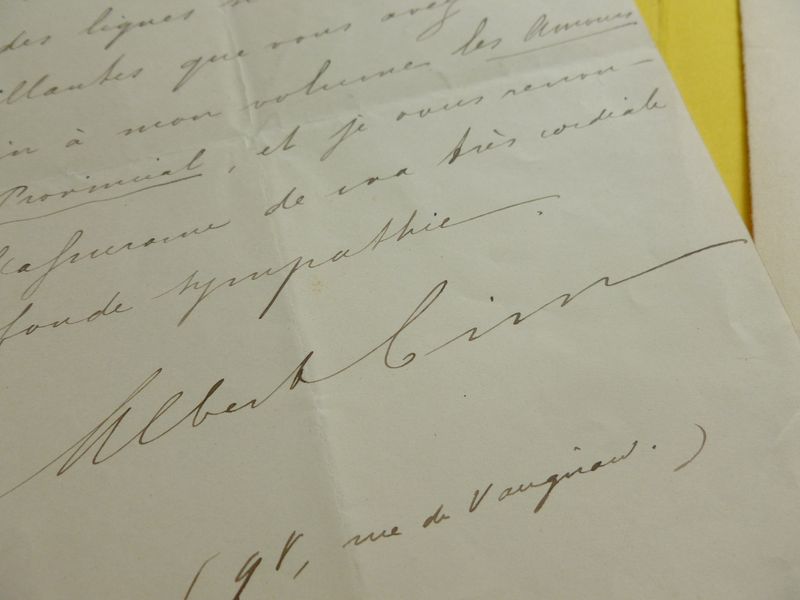 des lignes
illantes que vous avez
in à mon volume les Amours
Provincial, et je vous renou-
l'assurance de ma très cordiale
fonde sympathie.
Albert Cim
(98, rue de Vaugirard.)